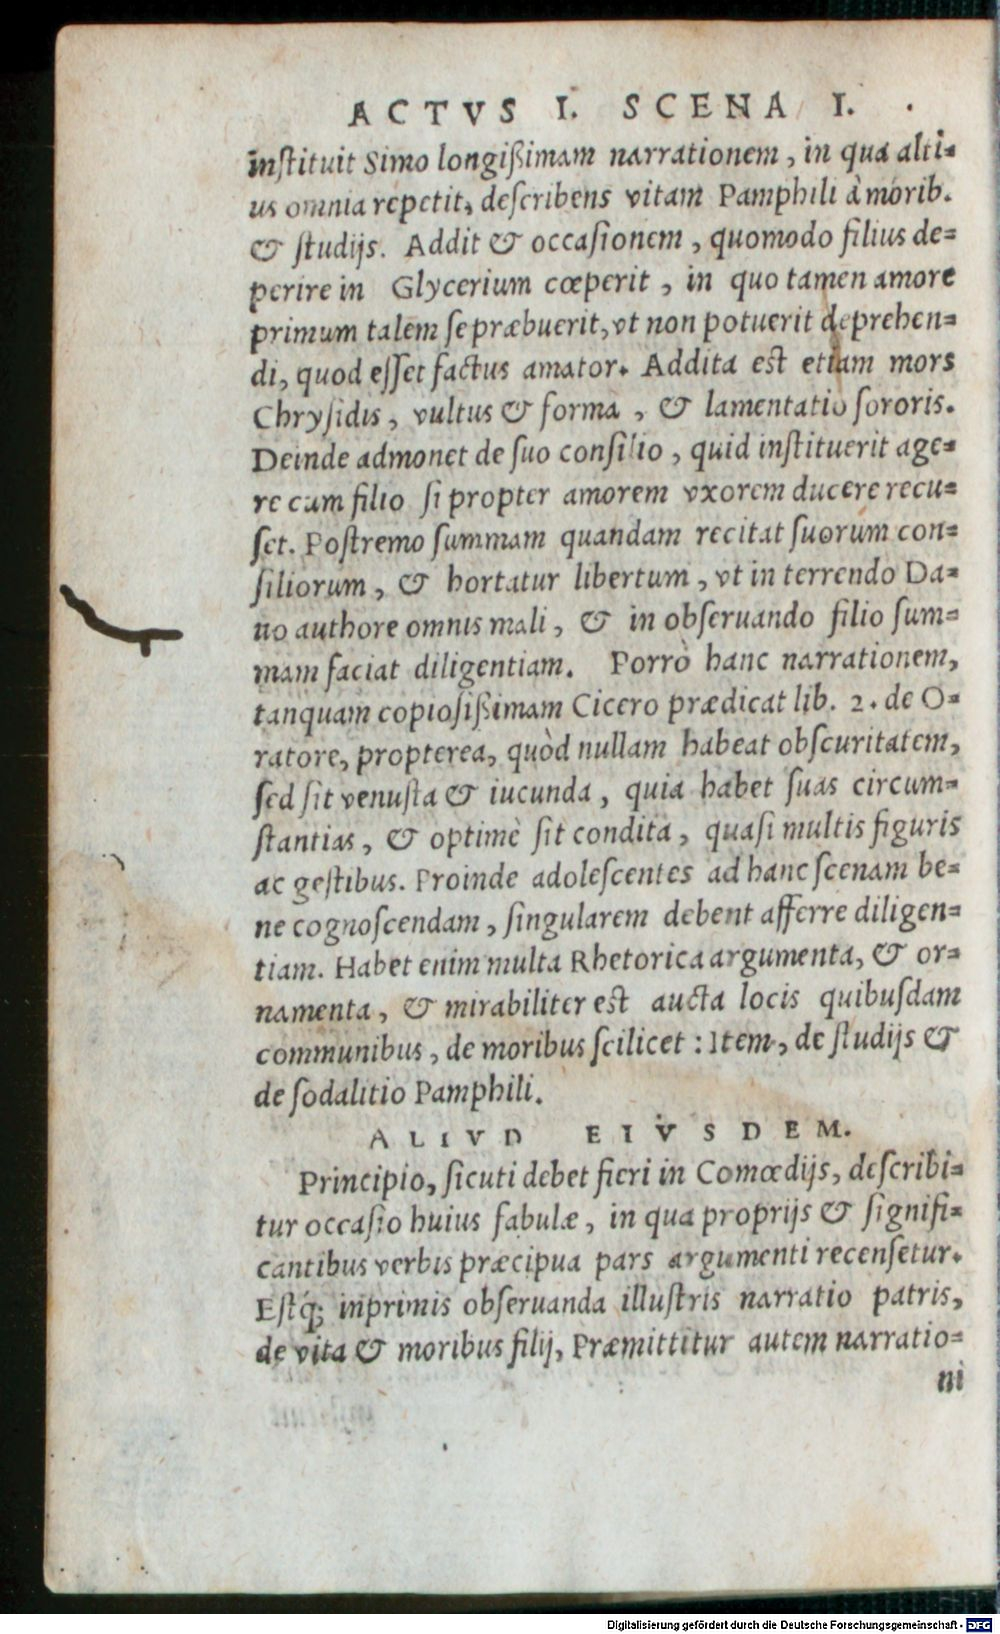 ACTVS I. SCENA I.
inſtituit Simo longiſsimam narrationem, in qua alti=
us omnia repetit, deſcribens vitam Pamphili à morib.
& ſtudijs. Addit & occaſionem, quomodo filius de=
perire in Glycerium cœperit, in quo tamen amore
primum talem ſe præbuerit, vt non potuerit deprehen=
di, quod eſſet factus amator. Addita est etiam mors
Chryſidis, vultus & forma, & lamentatio ſororis.
Deinde admonet de ſuo conſilio, quid inſtituerit age=
re cum filio ſi propter amorem vxorem ducere recu=
ſet. Poſtremo ſummam quandam recitat ſuorum con=
ſiliorum, & hortatur libertum, vt in terrendo Da=
uo authore omnis mali, & in obſeruando filio ſum=
mam faciat diligentiam. Porrò hanc narrationem,
tanquam copioſiſsimam Cicero prædicat lib. 2. de O=
ratore, propterea, quòd nullam habeat obſcuritatem,
ſed ſit venuſta & iucunda, quia habet ſuas circum=
ſtantias, & optimè ſit condita, quaſi multis figuris
ac geſtibus. Proinde adoleſcentes ad hanc ſcenam be=
ne cognoſcendam, ſingularem debent afferre diligen=
tiam. Habet enim multa Rhetorica argumenta, & or=
namenta, & mirabiliter est aucta locis quibuſdam
communibus, de moribus ſcilicet: Item, de ſtudijs &
de ſodalitio Pamphili.
ALIVD EIVSDEM.
Principio, ſicuti debet fieri in Comœdijs, deſcribi=
tur occaſio huius fabulæ, in qua proprijs & ſignifi=
cantibus verbis præcipua pars argumenti recenſetur.
Eſtq́; inprimis obſeruanda illuſtris narratio patris,
de vita & moribus filij, Præmittitur autem narratio=
ni
Digitalisierung gefördert durch die Deutsche Forschungsgemeinschaft - DFG